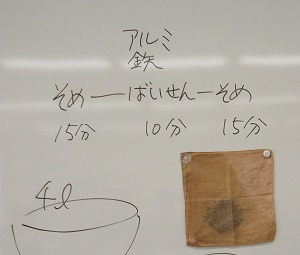 アルミ
鉄
そめ——ばいせん—そめ
15分 10分 15分
4ℓ